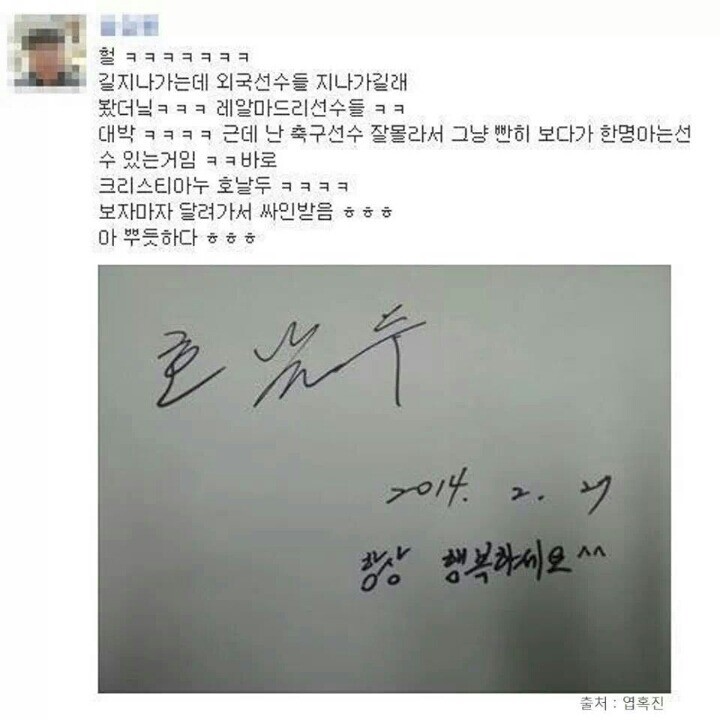 헐 ㅋㅋㅋㅋㅋㅋㅋ
길지나가는데 외국선수들 지나가길래
봤더닠ㅋㅋㅋ 레알마드리선수들 ㅋㅋ
대박 ㅋㅋㅋㅋ 근데 난 축구선수 잘몰라서 그냥 빤히 보다가 한명아는선
수 있는거임 ㅋㅋ바로
크리스티아누 호날두 ㅋㅋㅋㅋ
보자마자 달려가서 싸인받음 ㅎㅎㅎ
아 뿌듯하다 ㅎㅎㅎ
호날두
2014. 2. 27
항상 행복하세요^^
출처 : 엽혹진